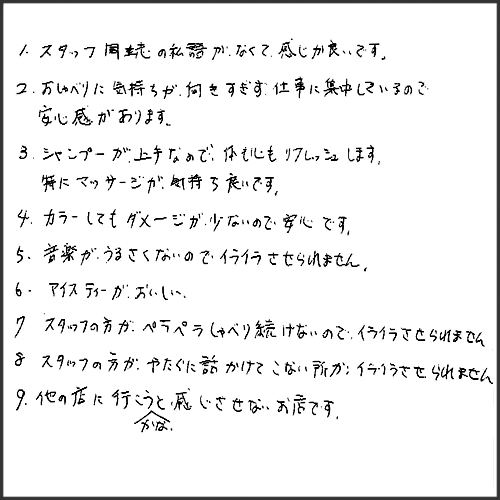 1. スタッフ同志の私語がなくて、感じが良いです。
2. おしゃべりに気持ちが向きすぎず仕事に集中しているので
安心感があります。
3. シャンプーが上手なので、体も心もリフレッシュします。
特にマッサージが気持ち良いです。
4. カラーしてもダメージが少ないので安心です。
5. 音楽がうるさくないのでイライラさせられません。
6. アイスティーがおいしい。
7 スタッフの方がペラペラしゃべり続けないので、イライラさせられません
8 スタッフの方がやたらに話かけてこない所がイライラさせられません
9. 他の店に行こうと感じさせないお店です。
かな